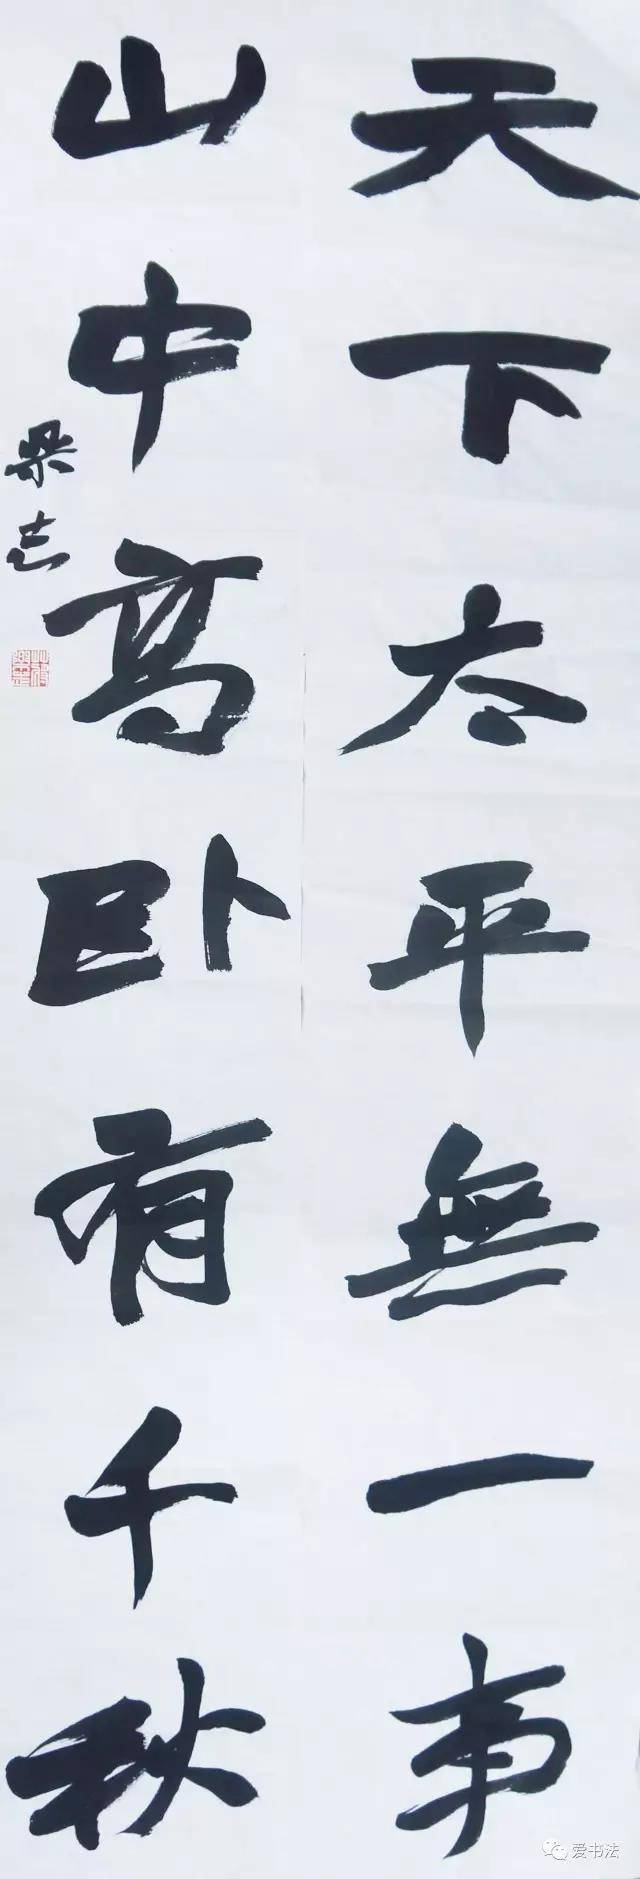 天下太平無一事
山中高卧有千秋
梁志
爱书法